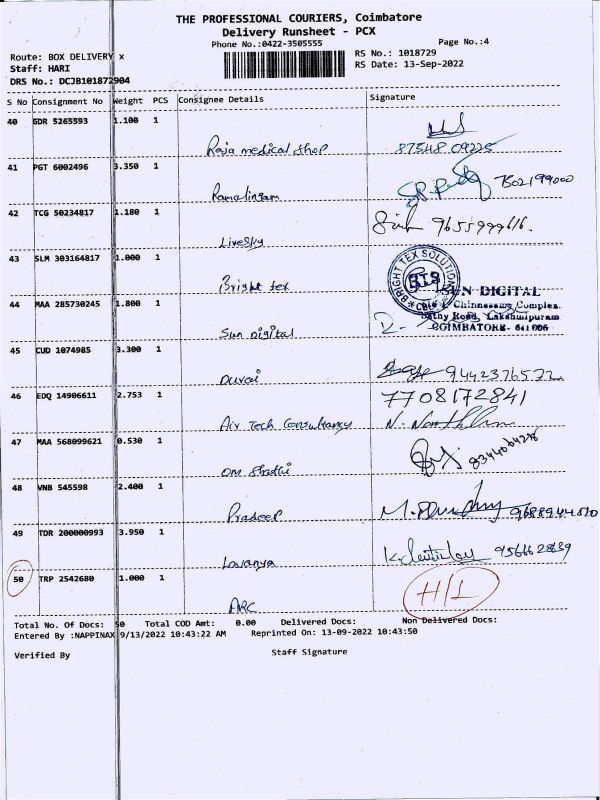 THE PROFESSIONAL COURIERS, Coimbatore
Delivery Runsheet - PCX
Phone No.:0422-3505555
Page No.:4
Route: BOX DELIVERY x
RS No.: 1018729
Staff: HARI
RS Date: 13-Sep-2022
DRS No.: DCJB101872904
S No Consignment No Weight PCS Consignee Details Signature
40 GDR 5265593 1.100 1
Raja medical shop 87548 09225
41 PGT 6002496 3.350 1
Ramalingam 7502199000
42 TCG 50234817 1.180 1
Livesky 9655999616.
43 SLM 303164817 1.000 1
Bright tex
BRIGHT TEX SOLUTION
BTS
44 MAA 285730245 1.800 1
Sun Digital
SUN DIGITAL
Chinnasamy Complex,
Sathy Road, Lakshmipuram
COIMBATORE- 641006
45 CUD 1074985 3.300 1
Durai
46 EDQ 14906611 2.753 1
7708172841
Air Tech Consultancy
47 MAA 568099621 0.530 1
Om Shakthi
48 VNB 545598 2.400 1
Pradeep
49 TDR 200000993 3.950 1
Lavanya
50 TRP 2542680 1.000 1
ARC H/L
Total No. Of Docs: 50 Total COD Amt: 0.00 Delivered Docs: Non Delivered Docs:
Entered By :NAPPINAX 9/13/2022 10:43:22 AM Reprinted On: 13-09-2022 10:43:50
Verified By Staff Signature